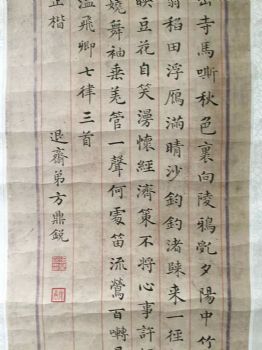 出寺馬嘶秋色裏向陵鴉亂夕陽中竹
稻田浮鴈滿晴沙鈞釣渚歸來一徑
映豆花自笑謾懷經濟策不將心事許
嬈舞袖垂羌管一聲何處笛流鶯百囀
溫飛卿七律三首
正楷
退齋弟方鼎銳